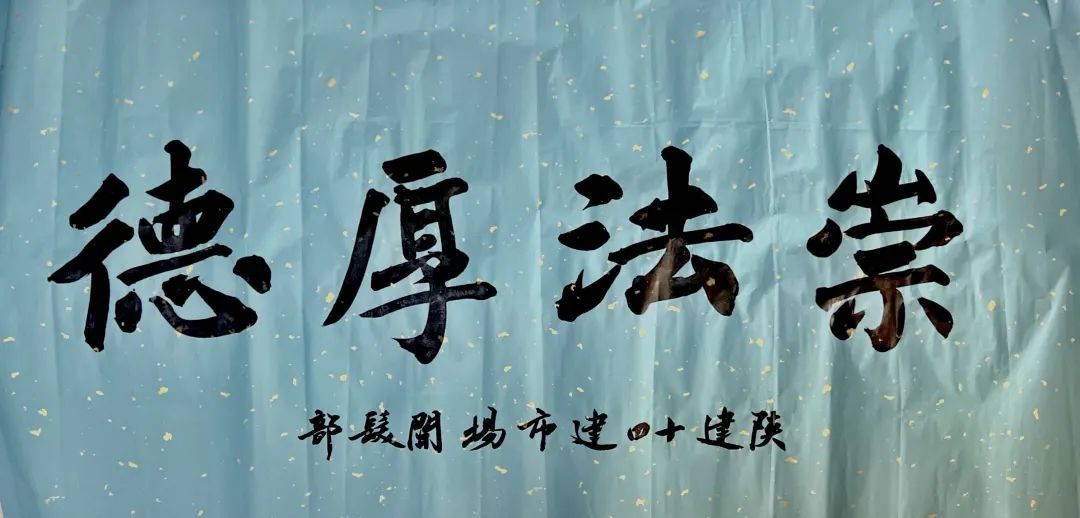 崇法厚德
陕建十四建市場開髮部